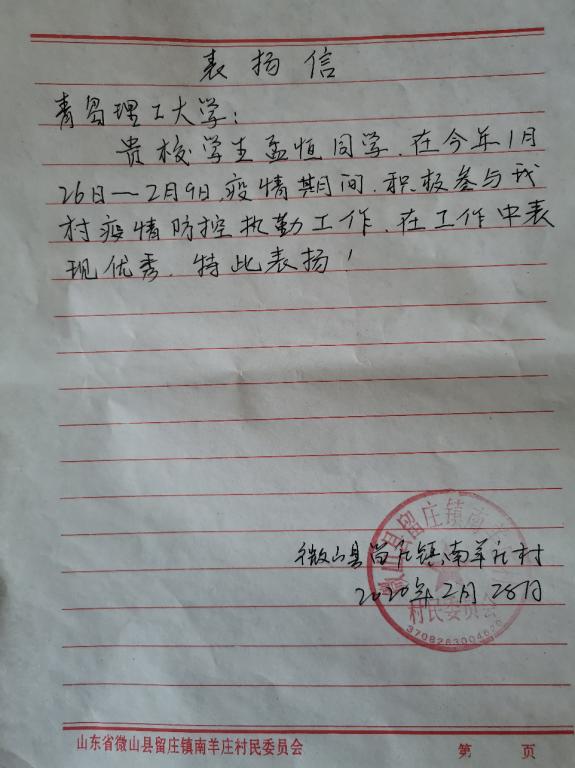 表扬信
青岛理工大学：
贵校学生孟恒同学，在今年1月
26日—2月9日，疫情期间，积极参与我
村疫情防控执勤工作，在工作中表
现优秀，特此表扬！
微山县留庄镇南羊庄村
2020年2月28日
微山县留庄镇南
村民委员会
3708263004620
山东省微山县留庄镇南羊庄村民委员会
第 页